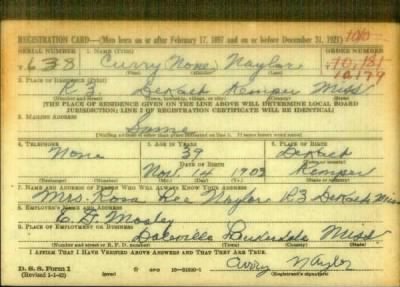 REGISTRATION CARD—(Men born on or after February 17, 1897 and on or before December 31, 1921)
SERIAL NUMBER 1. NAME (Print) ORDER NUMBER
638 Curry (None) Naylor 10,181
(First) (Middle) (Last) 10179
2. PLACE OF RESIDENCE (Print)
R 3 DeKalb Kemper Miss
(Number and street) (Town, township, village, or city) (County) (State)
[THE PLACE OF RESIDENCE GIVEN ON THE LINE ABOVE WILL DETERMINE LOCAL BOARD
JURISDICTION; LINE 2 OF REGISTRATION CERTIFICATE WILL BE IDENTICAL]
3. MAILING ADDRESS
Same
[Mailing address if other than place indicated on line 2. If same insert word same]
4. TELEPHONE 5. AGE IN YEARS 6. PLACE OF BIRTH
None 39 DeKalb
DATE OF BIRTH (Town or county)
Nov. 14 1902 Kemper
(Exchange) (Number) (Mo.) (Day) (Yr.) (State or country)
7. NAME AND ADDRESS OF PERSON WHO WILL ALWAYS KNOW YOUR ADDRESS
Mrs. Rosa Lee Naylor R3 DeKalb Miss
8. EMPLOYER'S NAME AND ADDRESS
Mosley
9. PLACE OF EMPLOYMENT OR BUSINESS
Daleville Miss
(Number and street or R. F. D. number) (Town) (County) (State)
I AFFIRM THAT I HAVE VERIFIED ABOVE ANSWERS AND THAT THEY ARE TRUE.
Curry Naylor
D. S. S. Form 1
(Revised 1-1-42) (over) (Registrant's signature)